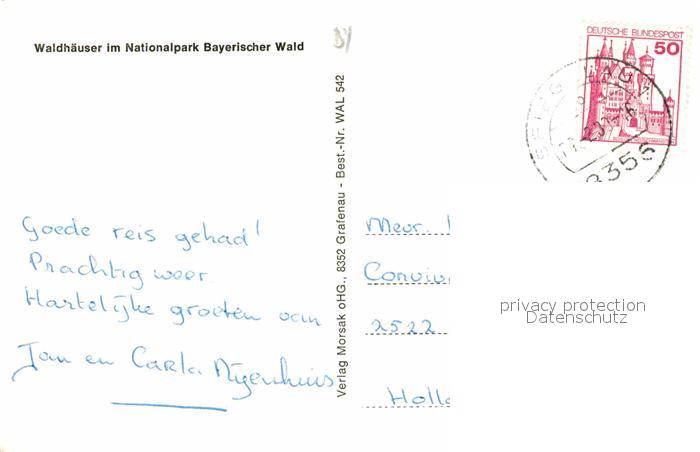 Waldhäuser im Nationalpark Bayerischer Wald
DEUTSCHE BUNDESPOST
50
8356
Goede reis gehad!
Prachtig weer.
Hartelijke groeten van
Jan en Carla Nijenhuis
Verlag Morsak oHG., 8352 Grafenau - Best.-Nr. WAL 542
Mevr.
2522
privacy protection
Datenschutz